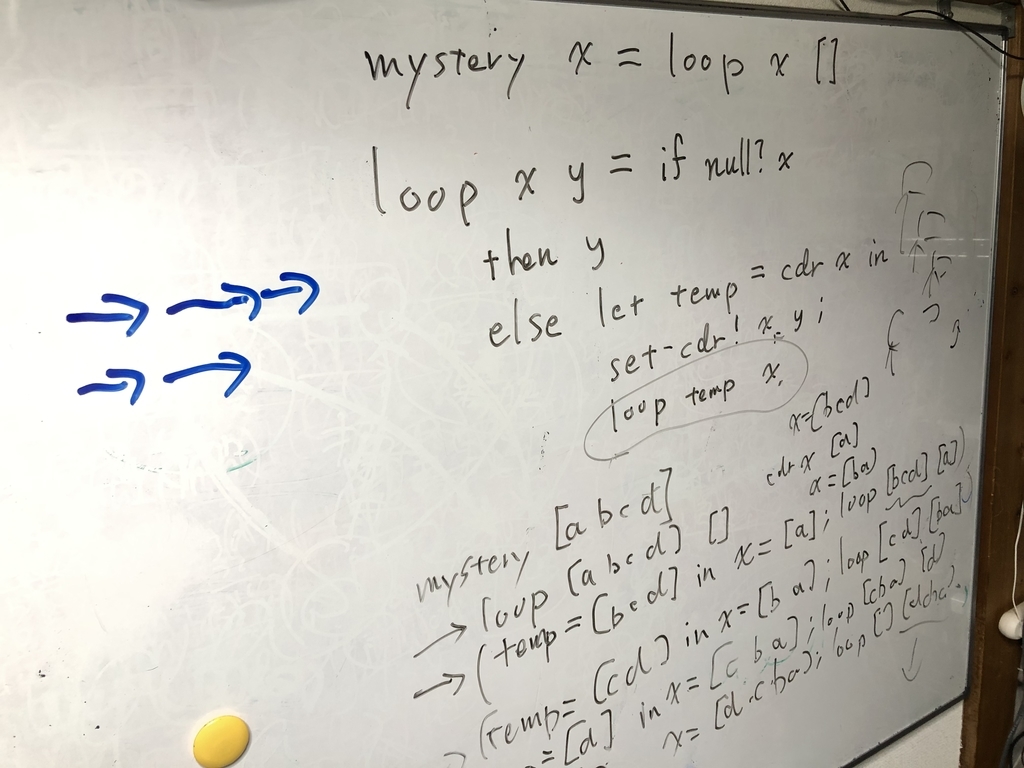 mystery x = loop x []
loop x y = if null? x
then y
else let temp = cdr x in
set-cdr! x y ;
loop temp x
x=[bcd]
cdr x [a]
x=[ba]
mystery [a b c d]
→ loop [a b c d] []
→ (temp = [b c d] in x = [a]; loop [bcd] [a])
(temp = [c d] in x = [b a]; loop [c d] [ba])
= [d] in x = [c b a]; loop [cba] [d]
x = [d c b a]; loop [] [dcba]